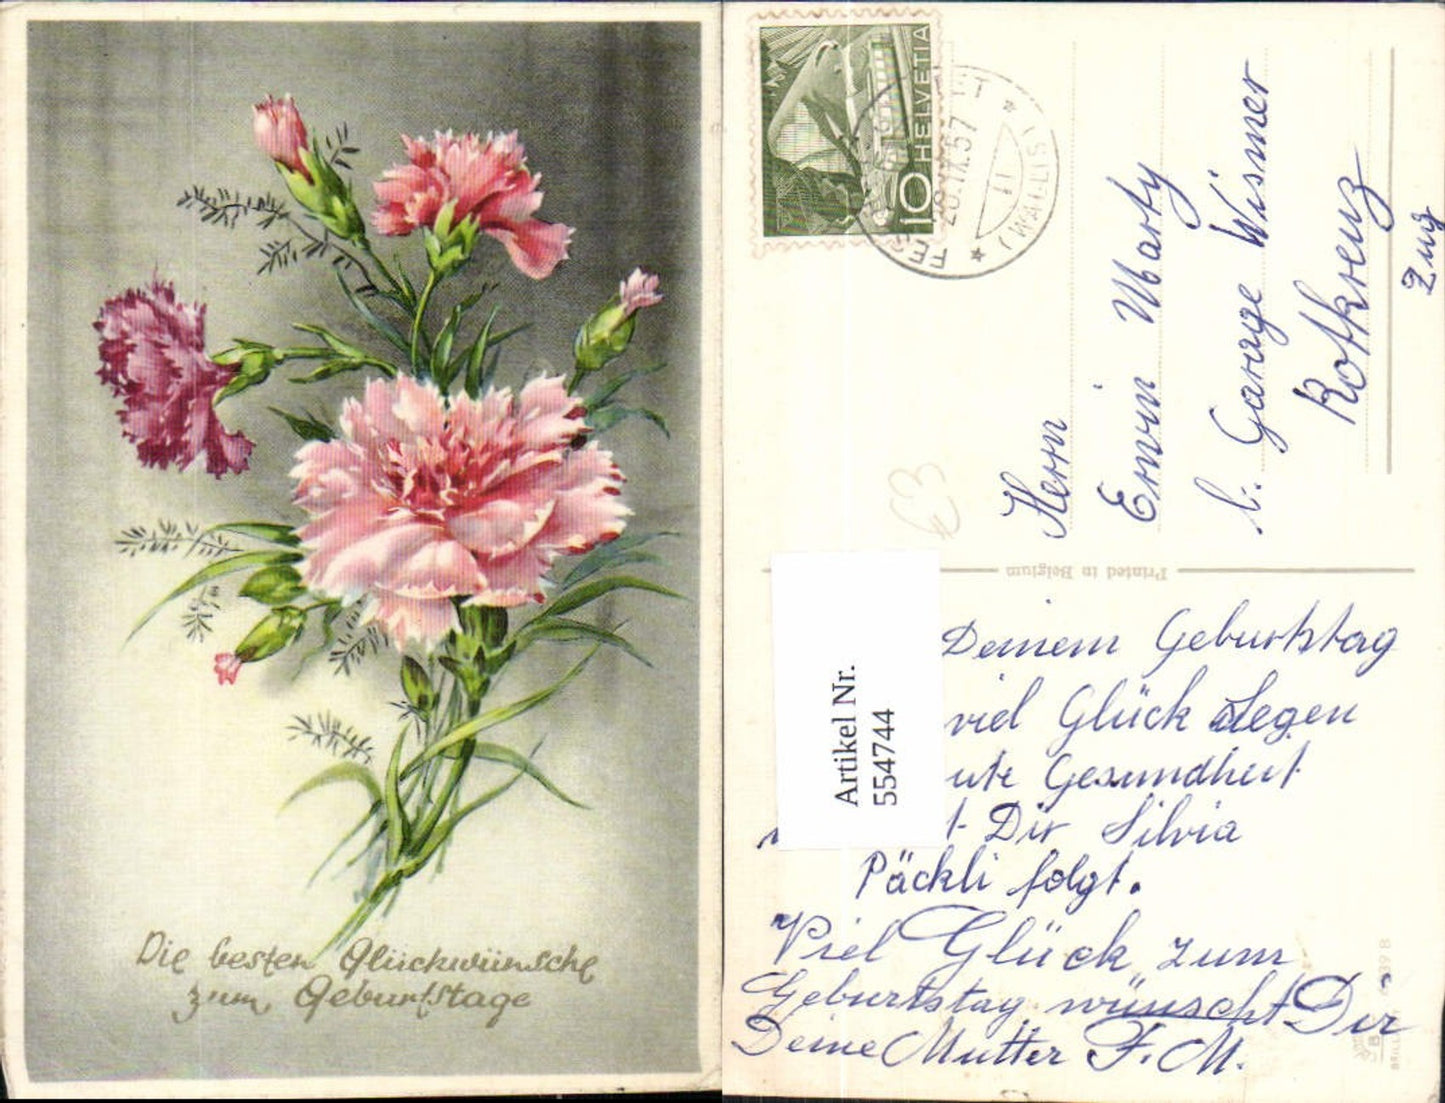 Die besten Glückwünsche
zum Geburtstage
HELVETIA
10
28.IX.57
(WALLIS)
Herrn
Erwin Marty
Garage Wismer
Rotkreuz
Zug
Printed in Belgium
Artikel Nr.
554744
Deinem Geburtstag
viel Glück Segen
ute Gesundheit
t Dir Silvia
Päckli folgt.
Viel Glück zum
Geburtstag wünscht Dir
Deine Mutter F. M.